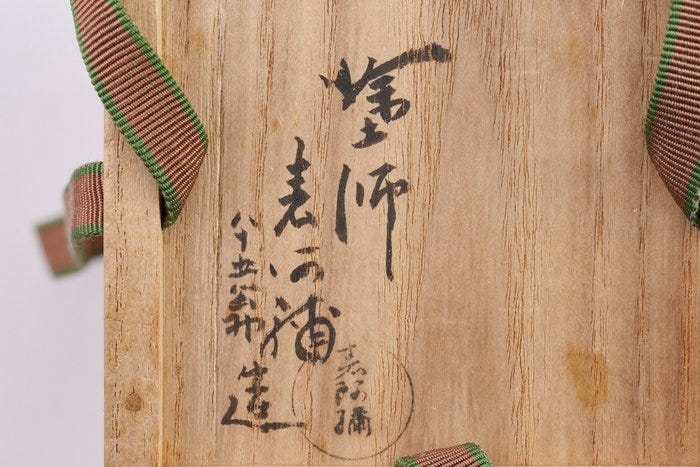 塗師
表阿彌
八十五翁造
表阿彌